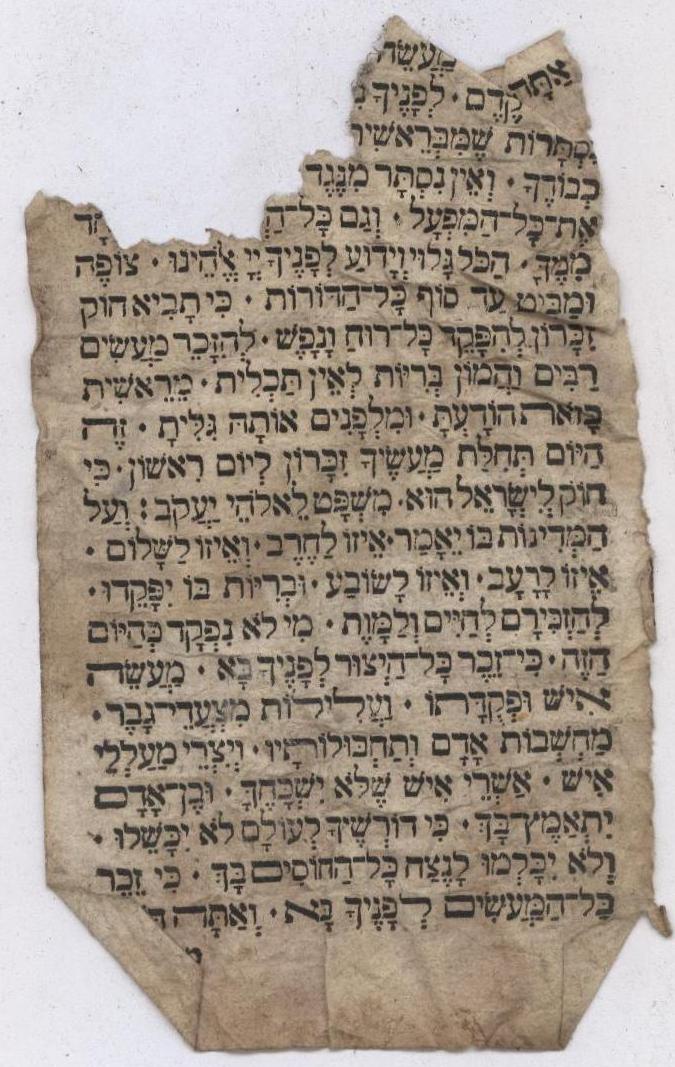 אַתָּה מַעֲשֵׂה
קֶדֶם · לְפָנֶיךָ
נִסְתָּרוֹת שֶׁמִּבְּרֵאשִׁי
כְבוֹדֶךָ · וְאֵין נִסְתָּר מִנֶּגֶד
אֶת־כָּל־הַמִּפְעָל · וְגַם כָּל־הַ
מִמֶּךָּ · הַכֹּל גָּלוּי וְיָדוּעַ לְפָנֶיךָ יְיָ אֱלֹהֵינוּ · צוֹפֶה
וּמַבִּיט עַד סוֹף כָּל־הַדּוֹרוֹת · כִּי תָבִיא חוֹק
זִכָּרוֹן לְהִפָּקֵד כָּל־רוּחַ וָנָפֶשׁ · לְהִזָּכֵר מַעֲשִׂים
רַבִּים וַהֲמוֹן בְּרִיּוֹת לְאֵין תַּכְלִית · מֵרֵאשִׁית
כָּזֹאת הוֹדָעְתָּ · וּמִלְּפָנִים אוֹתָהּ גִּלִּיתָ · זֶה
הַיּוֹם תְּחִלַּת מַעֲשֶׂיךָ זִכָּרוֹן לְיוֹם רִאשׁוֹן · כִּי
חוֹק לְיִשְׂרָאֵל הוּא · מִשְׁפָּט לֵאלֹהֵי יַעֲקֹב : וְעַל
הַמְּדִינוֹת בּוֹ יֵאָמַר · אֵיזוֹ לַחֶרֶב · וְאֵיזוֹ לַשָּׁלוֹם ·
אֵיזוֹ לָרָעָב · וְאֵיזוֹ לָשׂוֹבַע · וּבְרִיּוֹת בּוֹ יִפָּקֵדוּ ·
לְהַזְכִּירָם לְחַיִּים וְלַמָּוֶת · מִי לֹא נִפְקָד כְּהַיּוֹם
הַזֶּה · כִּי־זֵכֶר כָּל־הַיְצוּר לְפָנֶיךָ בָּא · מַעֲשֵׂה
אִישׁ וּפְקֻדָּתוֹ · וַעֲלִילוֹת מִצְעֲדֵי־גָבֶר ·
מַחְשְׁבוֹת אָדָם וְתַחְבּוּלוֹתָיו · וְיִצְרֵי מַעַלְלֵי
אִישׁ · אַשְׁרֵי אִישׁ שֶׁלֹּא יִשְׁכָּחֶךָּ · וּבֶן־אָדָם
יִתְאַמֶּץ־בָּךְ · כִּי דוֹרְשֶׁיךָ לְעוֹלָם לֹא יִכָּשֵׁלוּ ·
וְלֹא יִכָּלְמוּ לָנֶצַח כָּל־הַחוֹסִים בָּךְ · כִּי זֵכֶר
כָּל־הַמַּעֲשִׂים לְפָנֶיךָ בָּא · וְאַתָּה